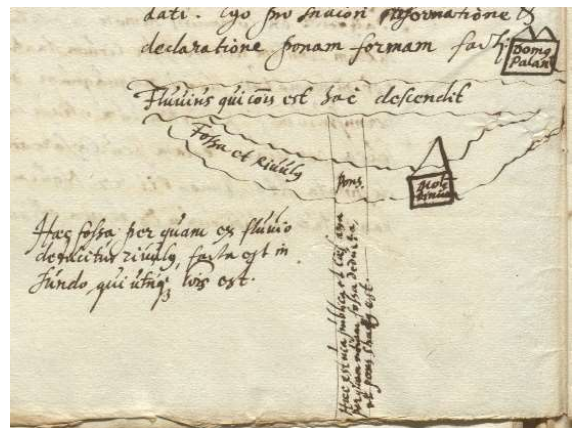 dati. Ego pro maiori informatione et
declaratione ponam formam facti
Domq
Palan
Fluvius qui cois est hac descendit
Fossa et Rivulq
pons.
Mole
Hæc fossa per quam ex fluvio
deducitur rivulq, facta est in
fundo, qui utriq cois est.
Hæc est via publica et
per quam fossa deducta,
et pons est.